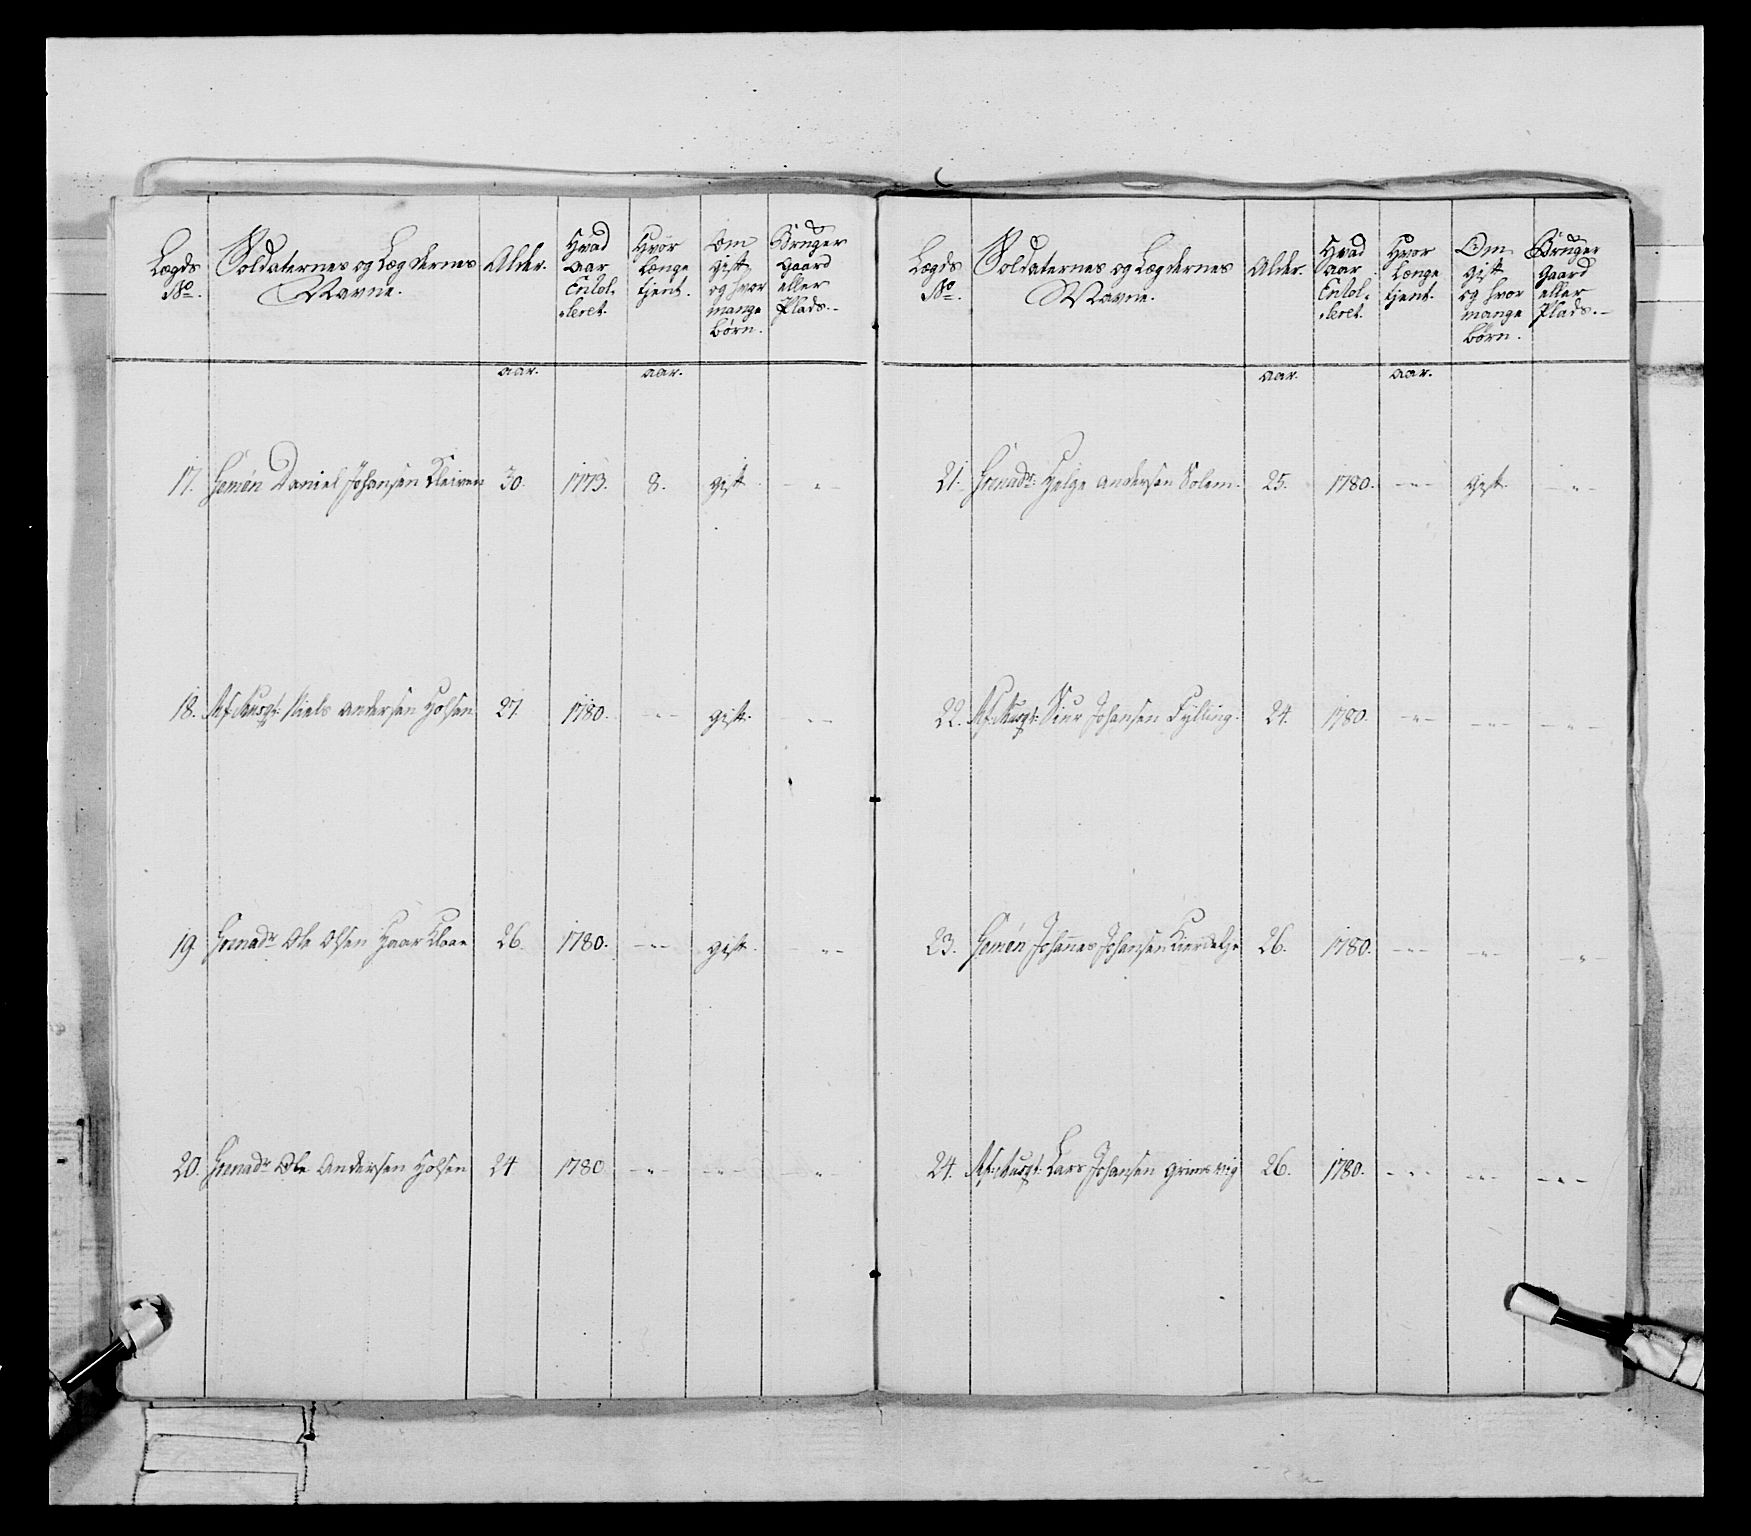 Lægds No.
Soldaternes og Lægdernes Navne.
Alder.
Hvad aar Enrol-leret.
Hvor længe tjent.
Om gift og hvor mange børn.
Bruger gaard eller Plads.
aar. aar.
17. Gemēn Daniel Johansen Kleiven 30. 1773. 8. gift - " -
18. Af. Ausgt: Niels Andersen Holsen 27. 1780. - " - gift. - " -
19. Grenadr Ole Olsen Haar Klaae 26. 1780. - " - gift. - " -
20. Grenadr Ole Andersen Holsen 24 1780 - " - - " - "
Lægds No.
Soldaternes og Lægdernes Navne.
Alder.
Hvad aar Enrol-leret.
Hvor længe tjent.
Om gift og hvor mange børn.
Bruger gaard eller Plads.
aar. aar.
21. Grenadr: Helge Andersen Solem. 25. 1780. - " - gift. - " -
22. Af. Ausgt: Siur Johansen Fylling. 24. 1780. - " - - " - - " -
23. Gemēn Johannes Johansen 26. 1780. - " - - " - - " -
24. Af. Ausgt: Lars Johansen Grimsvig 26. 1780. - " - - " - - " -